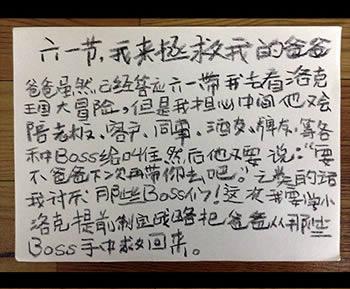 六一节,我来拯救我的爸爸
爸爸虽然已经答应六一带我去看洛克
王国大冒险。但是我担心中间他又会
陪老板、客户、同事、酒友、牌友、等各
种Boss给叫住然后他又要说:“要
不爸爸下次再带你去吧。”之类的话
我讨厌那些Boss们!这次我要学小
洛克提前制定战略把爸爸从那些
Boss手中求救回来。